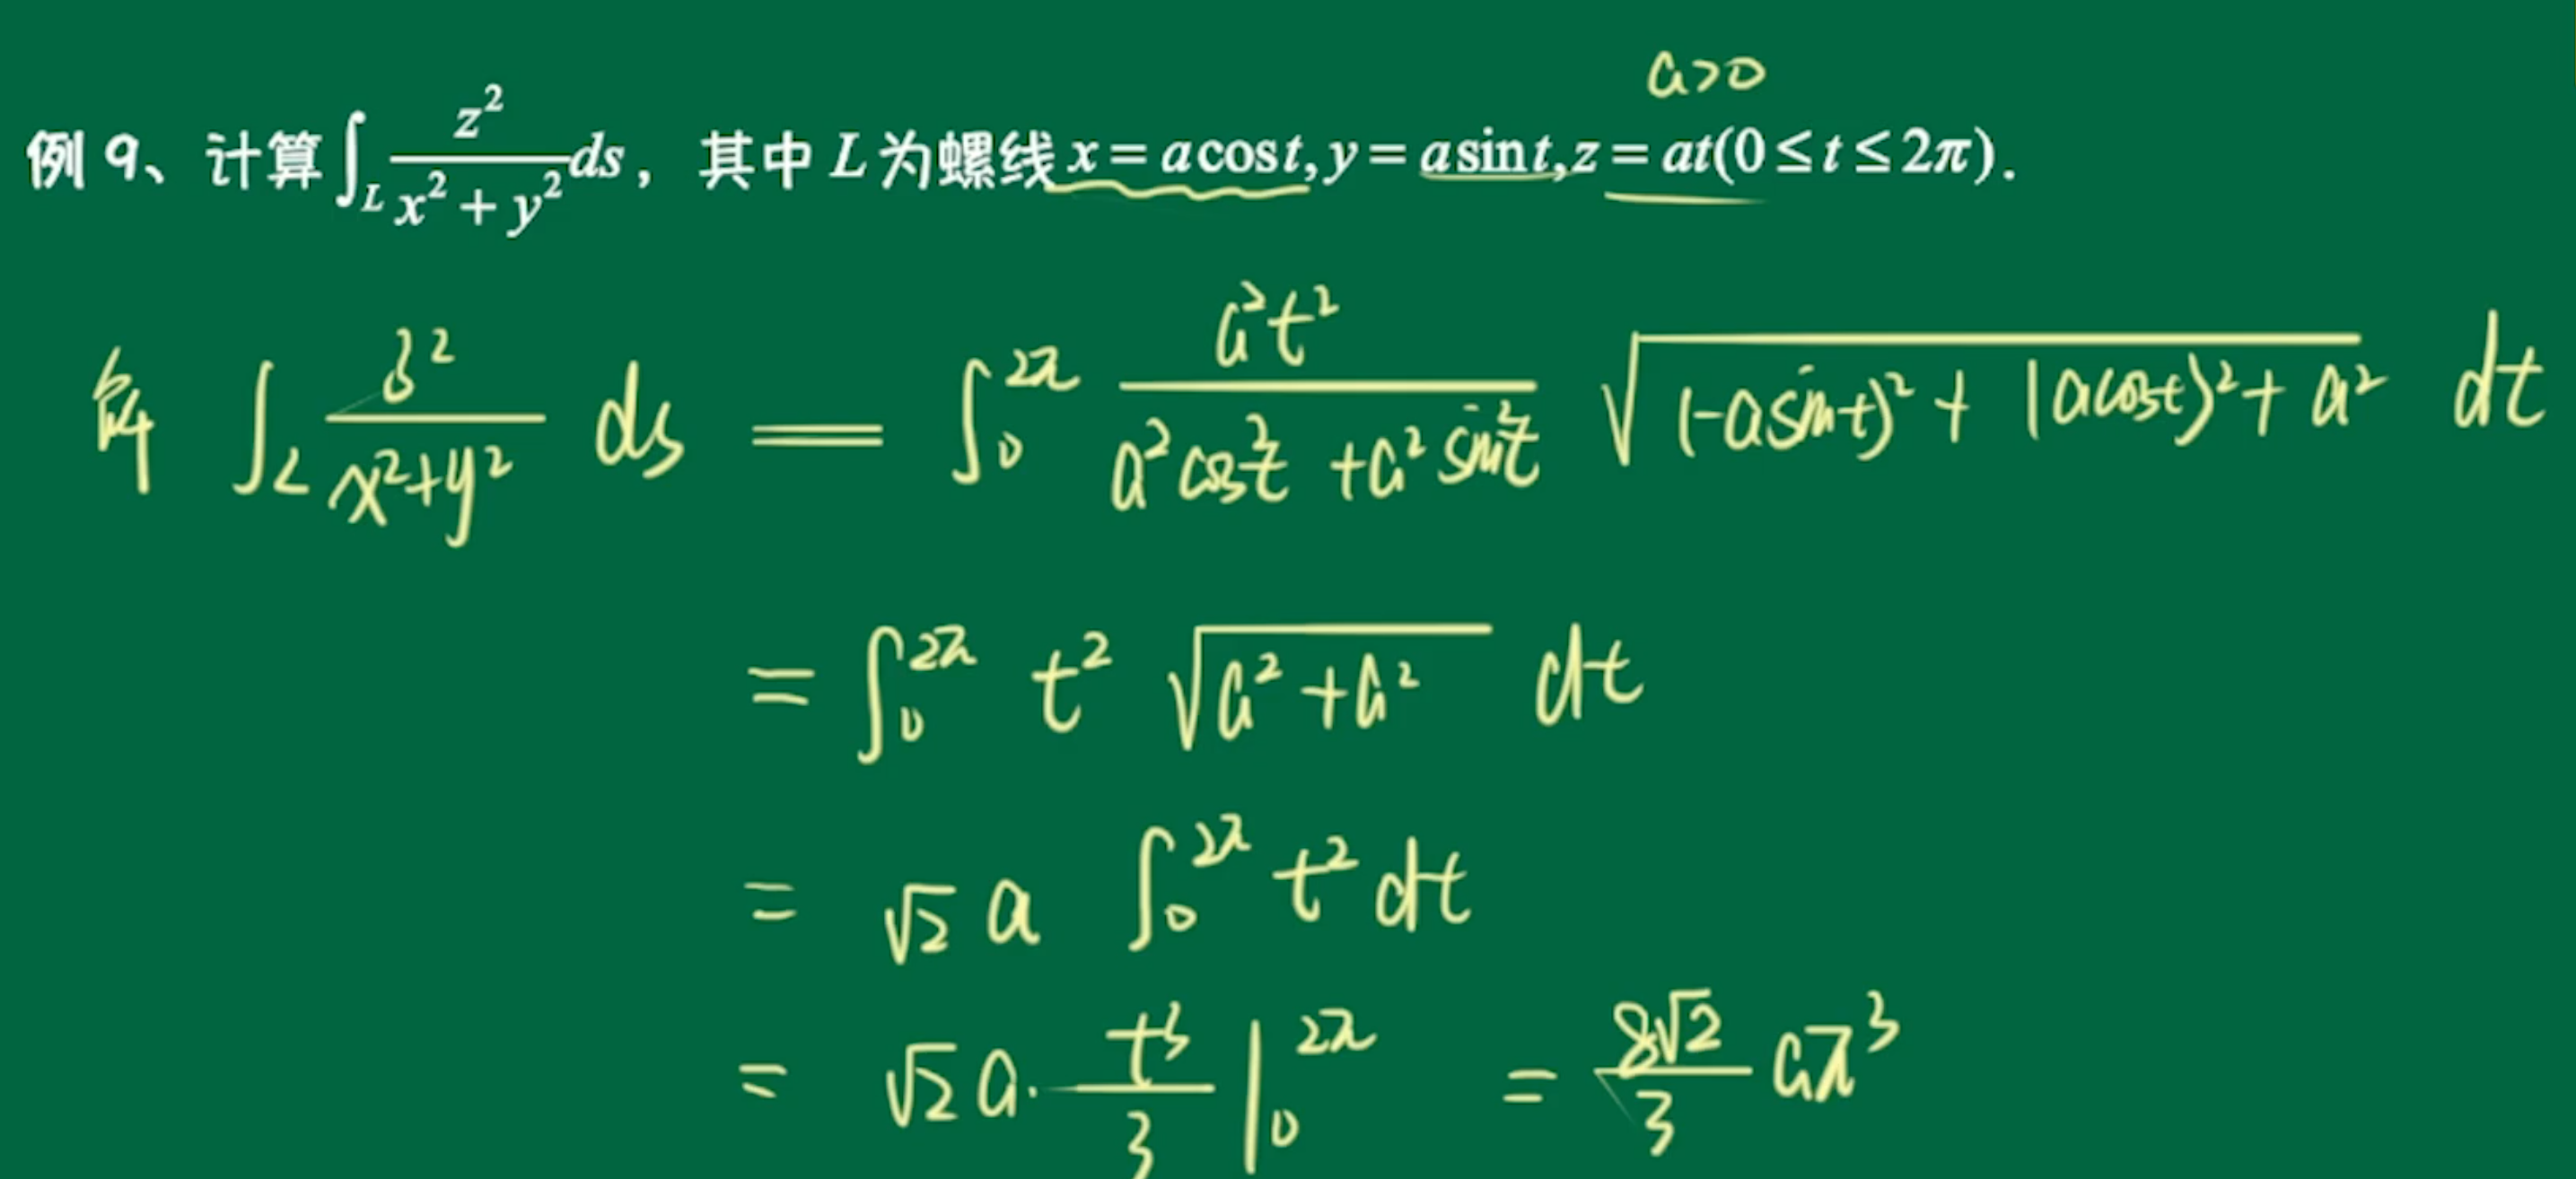 a>0
例 9、计算∫_L z²/(x²+y²) ds，其中 L 为螺线 x = a cos t, y = a sin t, z = at(0 ≤ t ≤ 2π).
解 ∫_L z²/(x²+y²) ds = ∫₀^{2π} a²t²/(a²cos²t + a²sin²t) √((-a sin t)² + (a cos t)² + a²) dt
= ∫₀^{2π} t² √(a² + a²) dt
= √2 a ∫₀^{2π} t² dt
= √2 a · t³/3 |₀^{2π} = 8√2/3 aπ³